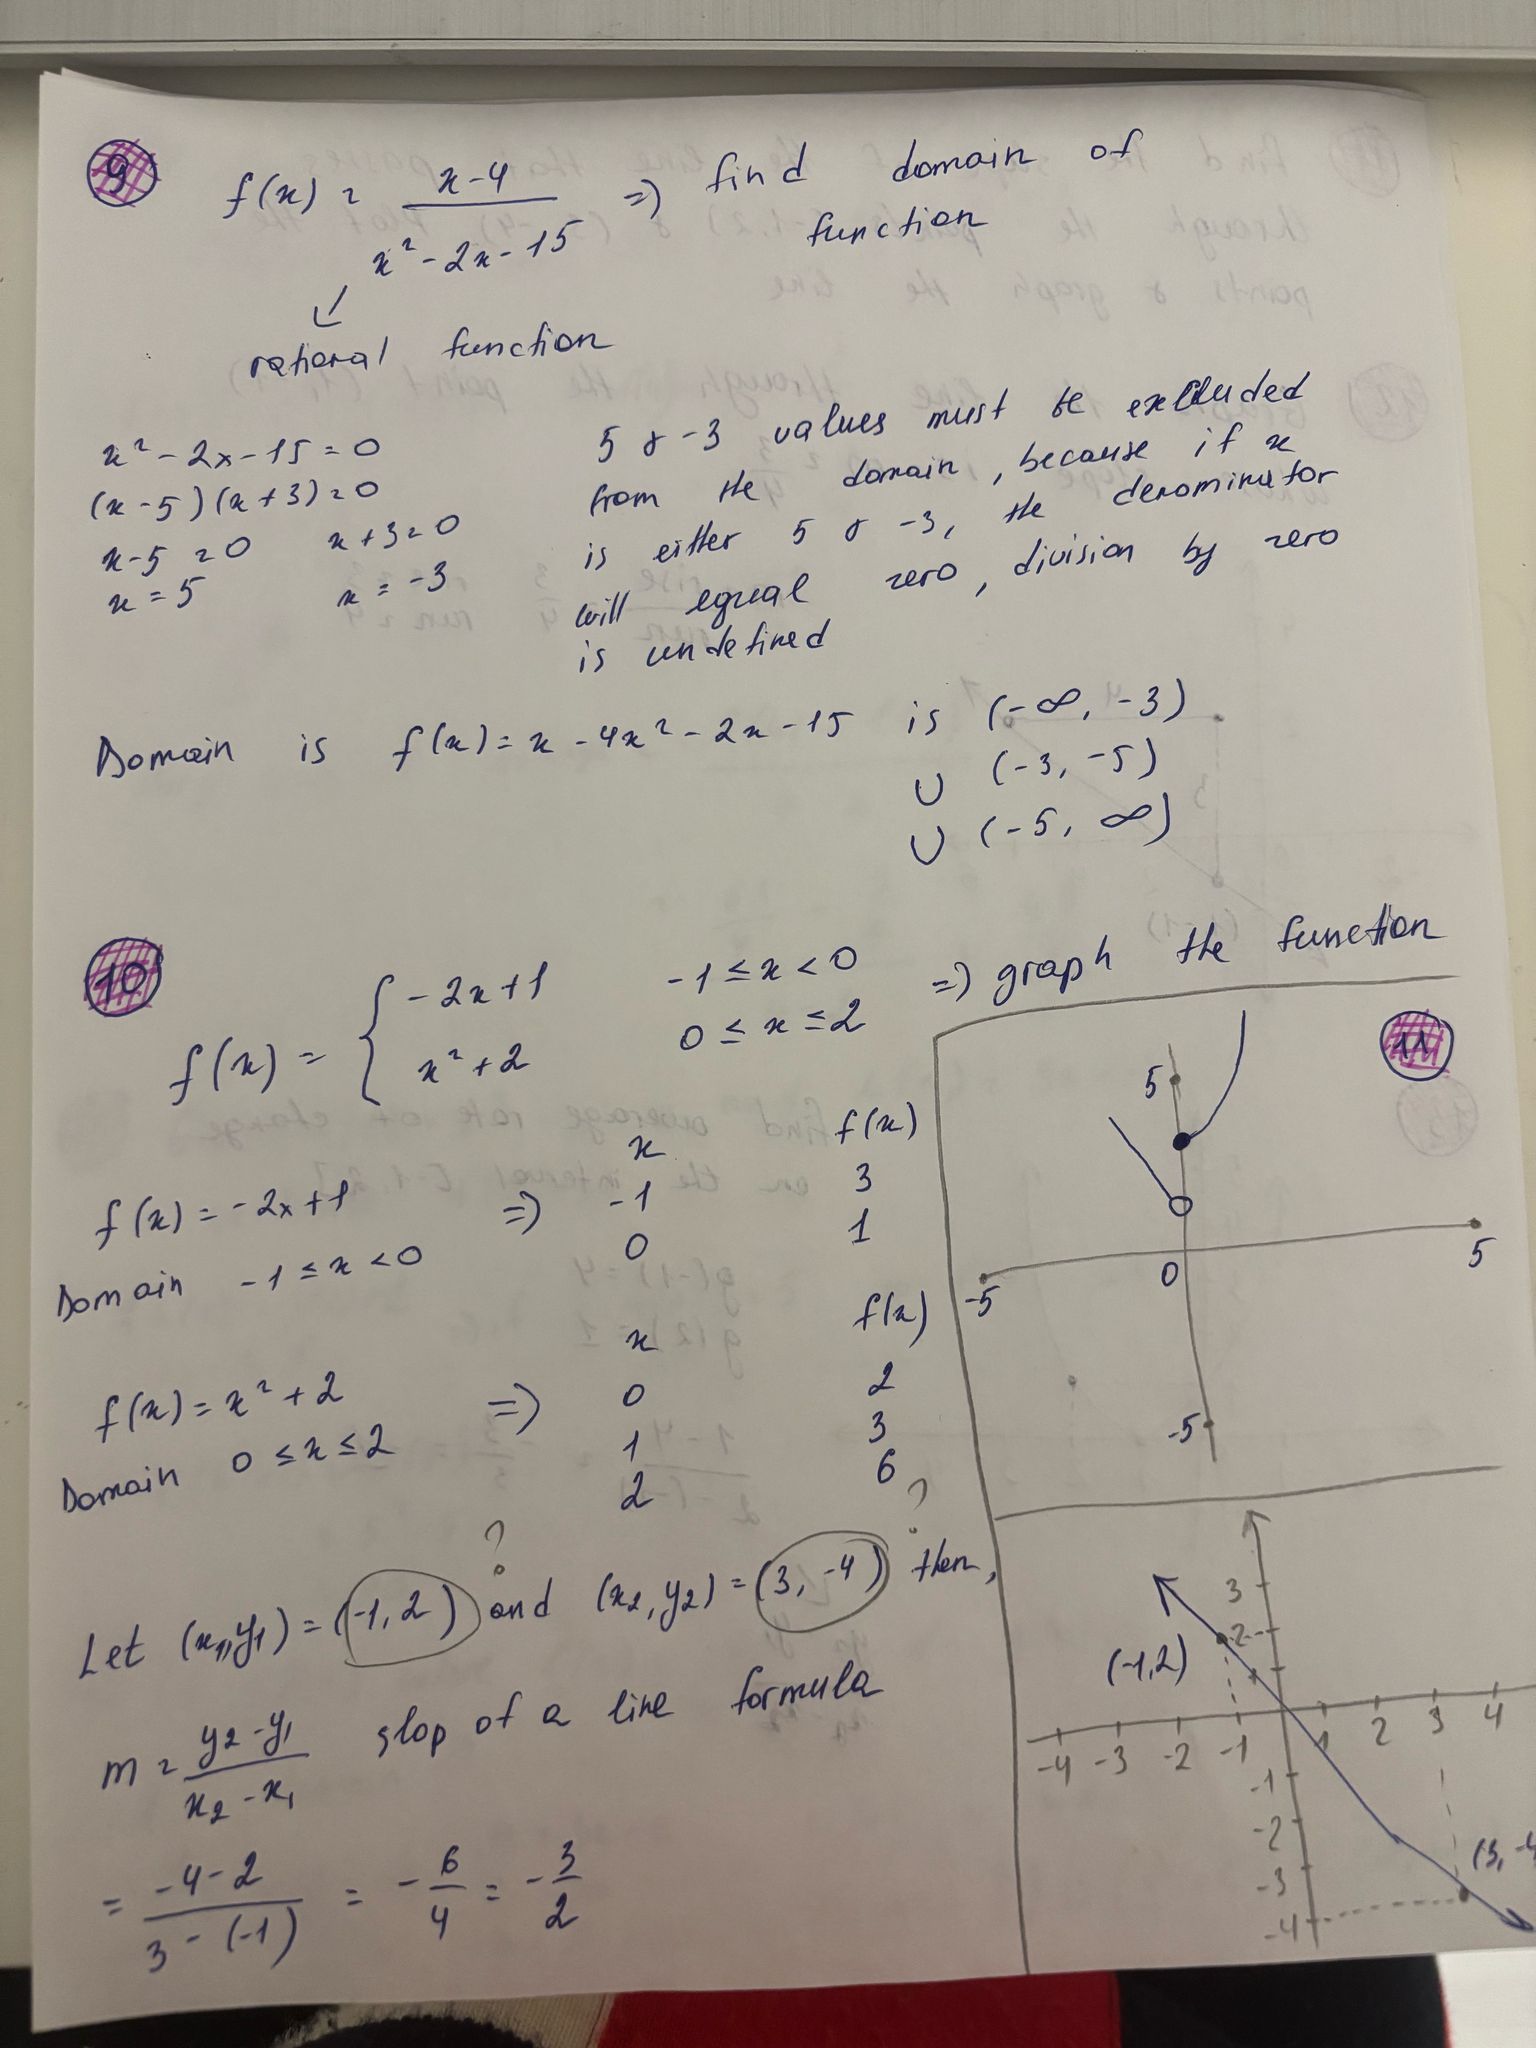 9
f(x) = x-4 / x² - 2x - 15 => find domain of
function
rational function
x² - 2x - 15 = 0
(x - 5)(x + 3) = 0
x - 5 = 0 x + 3 = 0
x = 5 x = -3
5 & -3 values must be excluded
from the domain, because if x
is either 5 & -3, the denominator
will equal zero, division by zero
is undefined
Domain is f(x) = x - 4x² - 2x - 15 is (-∞, -3)
∪ (-3, -5)
∪ (-5, ∞)
10
f(x) = { -2x+1 -1 ≤ x < 0 => graph the function
x² + 2 0 ≤ x ≤ 2
x f(x)
f(x) = -2x+1 => -1 3
Domain -1 ≤ x < 0 0 1
x f(x)
f(x) = x² + 2 => 0 2
Domain 0 ≤ x ≤ 2 1 3
2 6
11
5
-5 0 5
-5
? ?
Let (x₁, y₁) = (-1, 2) and (x₂, y₂) = (3, -4) then,
m = y₂ - y₁ / x₂ - x₁ slop of a line formula
= -4 - 2 / 3 - (-1) = - 6/4 = - 3/2
3
2
(-1,2)
1
-4 -3 -2 -1 1 2 3 4
-1
-2
-3
(3, -4
-4